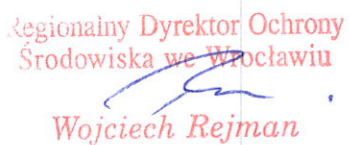 Regionalny Dyrektor Ochrony
Środowiska we Wrocławiu
Wojciech Rejman